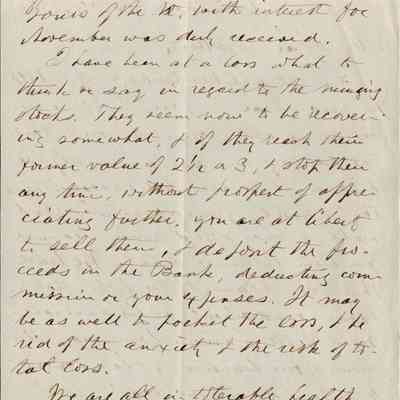 Yours of the 10th, with interest for
November was duly received.
I have been at a loss what to
think or say in regard to the mining
stocks. They seem now to be recover-
ing somewhat, & if they reach their
former value of 2 1/2 or 3, & stop there
any time, without prospect of appre-
ciating further, you are at liberty
to sell them, & deposit the pro-
ceeds in the Bank, deducting com-
mission or your expenses. It may
be as well to pocket the loss, & be
rid of the anxiety & the risk of to-
tal loss.
We are all in tolerable health